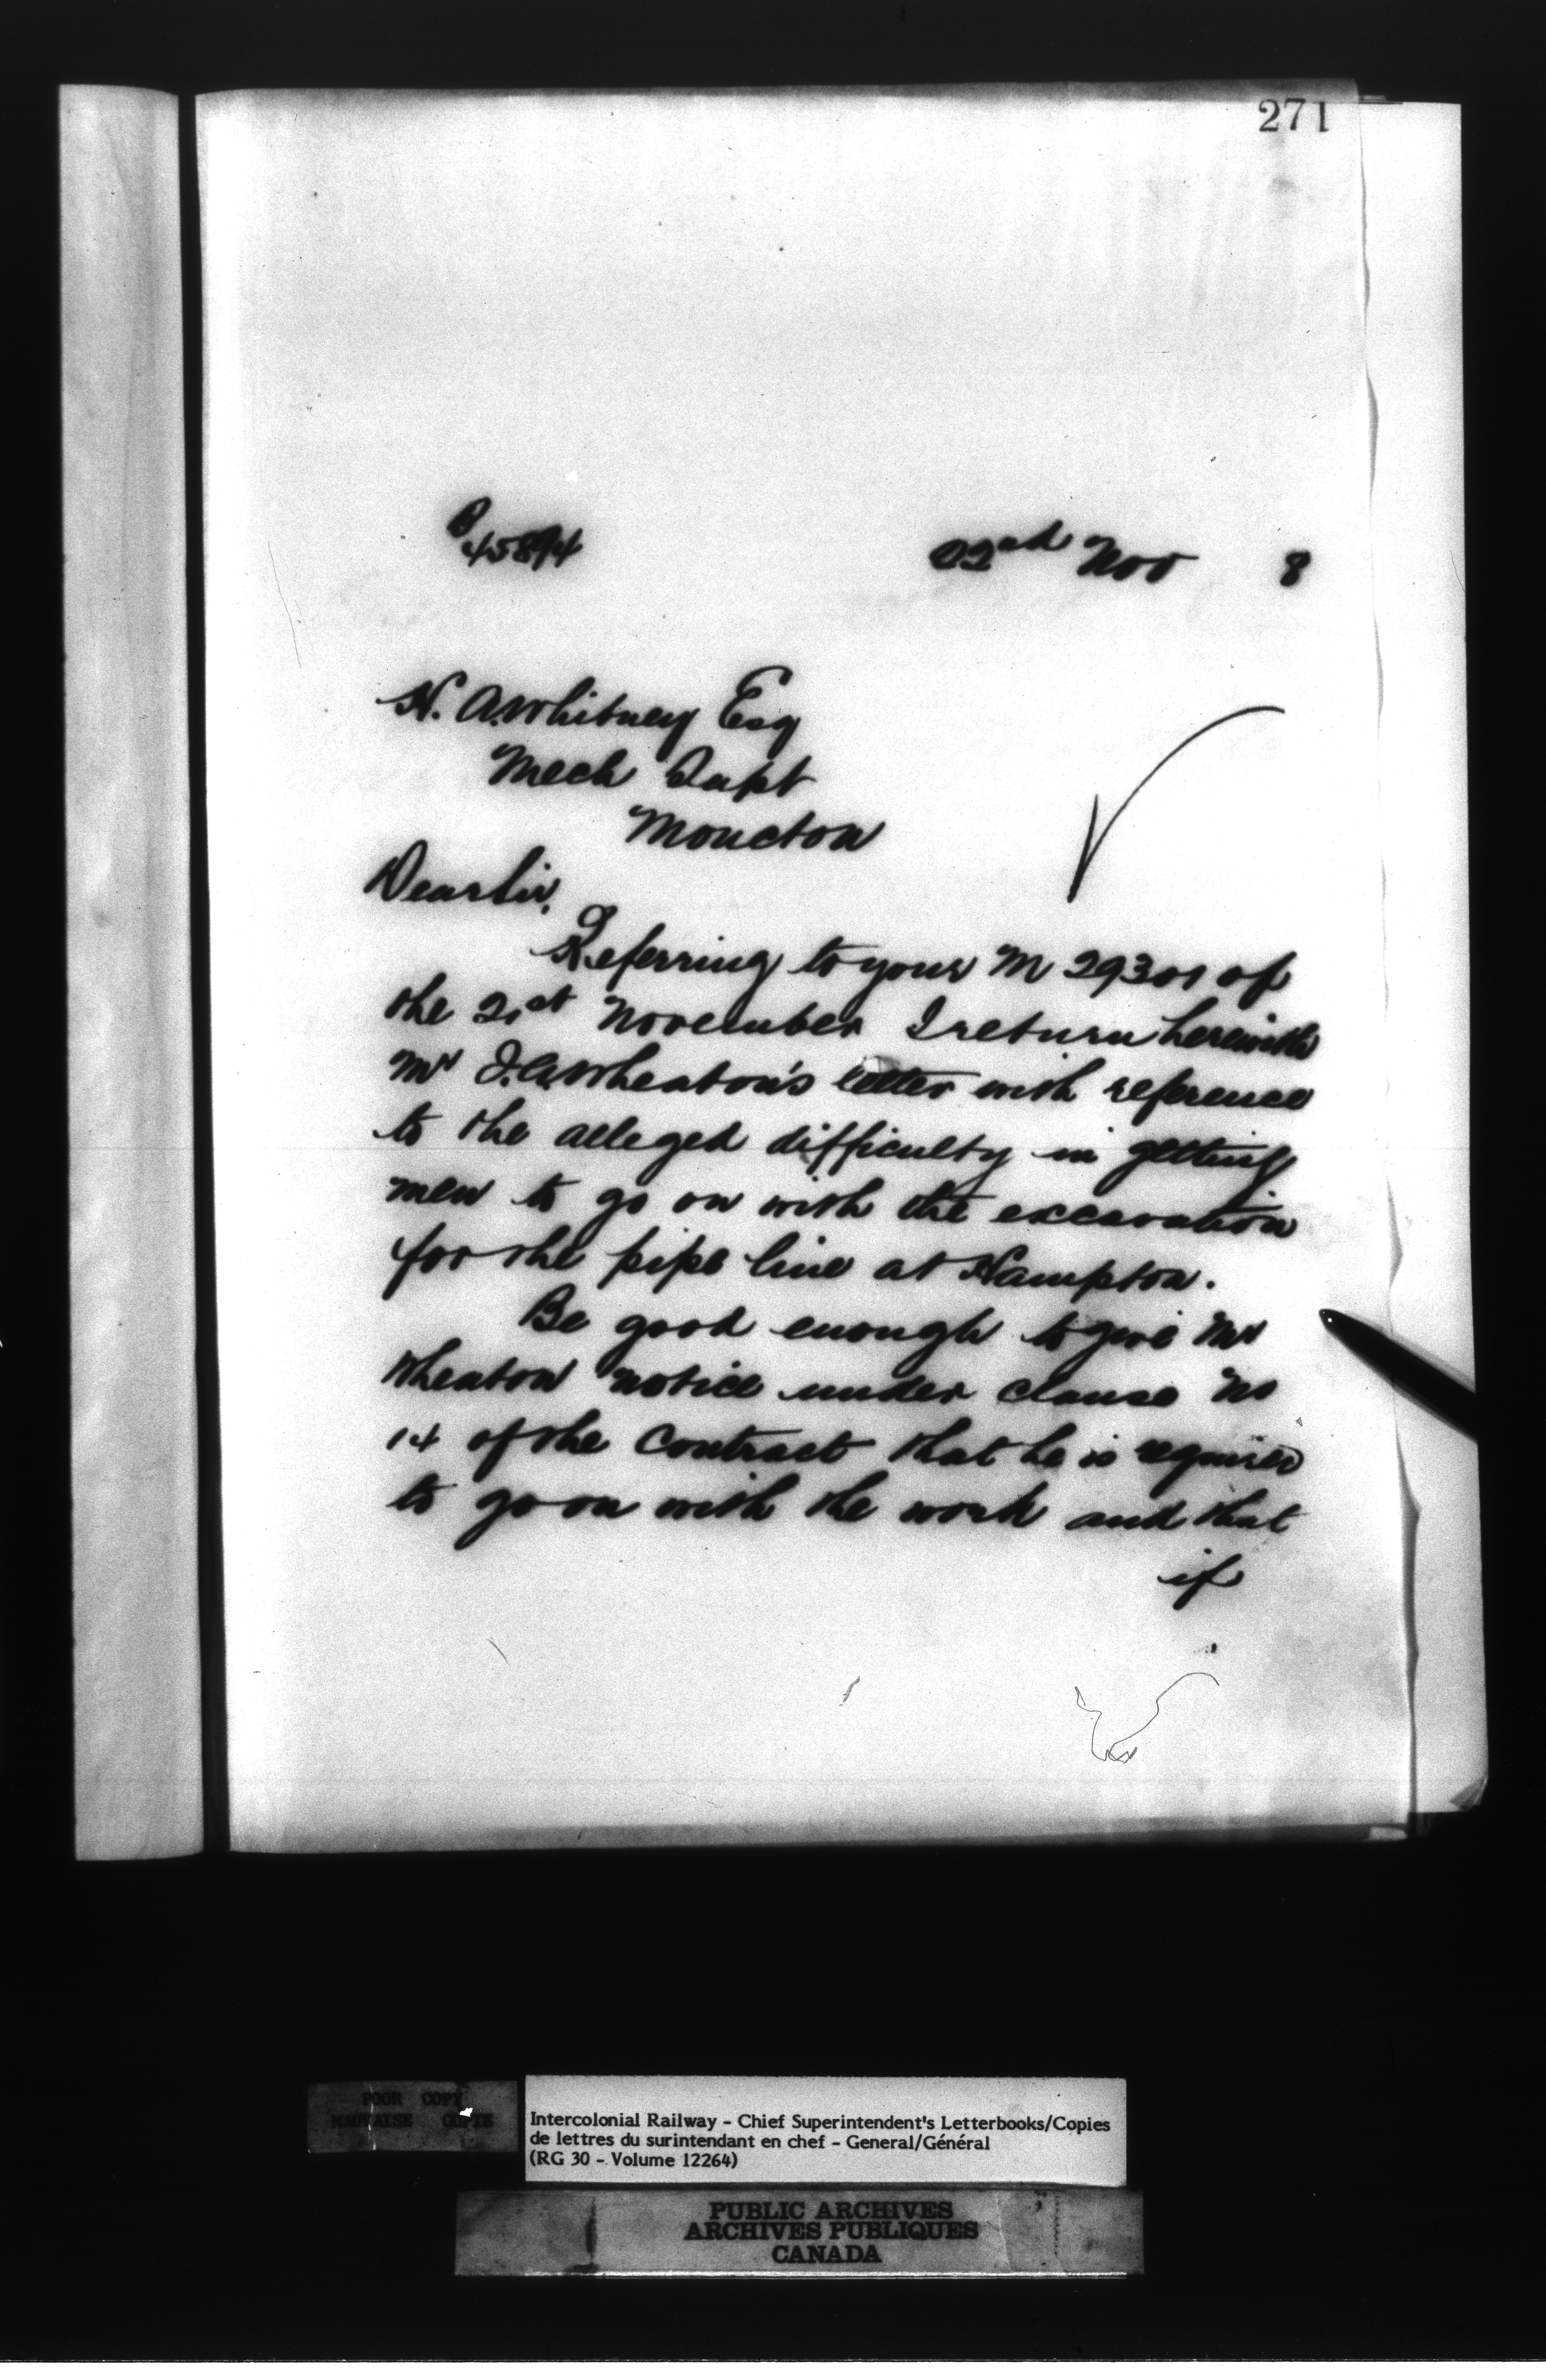 271
B
45894
22nd Nov 8
H. A. Whitney Esq
Mech Supt
Moncton
Dear Sir,
Referring to your M 29301 of
the 21st November I return herewith
Mr J. A. Wheaton's letter with reference
to the alleged difficulty in getting
men to go on with the excavation
for the pipe line at Hampton.
Be good enough to give Mr
Wheaton notice under clause No
14 of the Contract that he is required
to go on with the work and that
if
POOR COPY
MAUVAISE COPIE
Intercolonial Railway - Chief Superintendent's Letterbooks/Copies
de lettres du surintendant en chef - General/Général
(RG 30 - Volume 12264)
PUBLIC ARCHIVES
ARCHIVES PUBLIQUES
CANADA